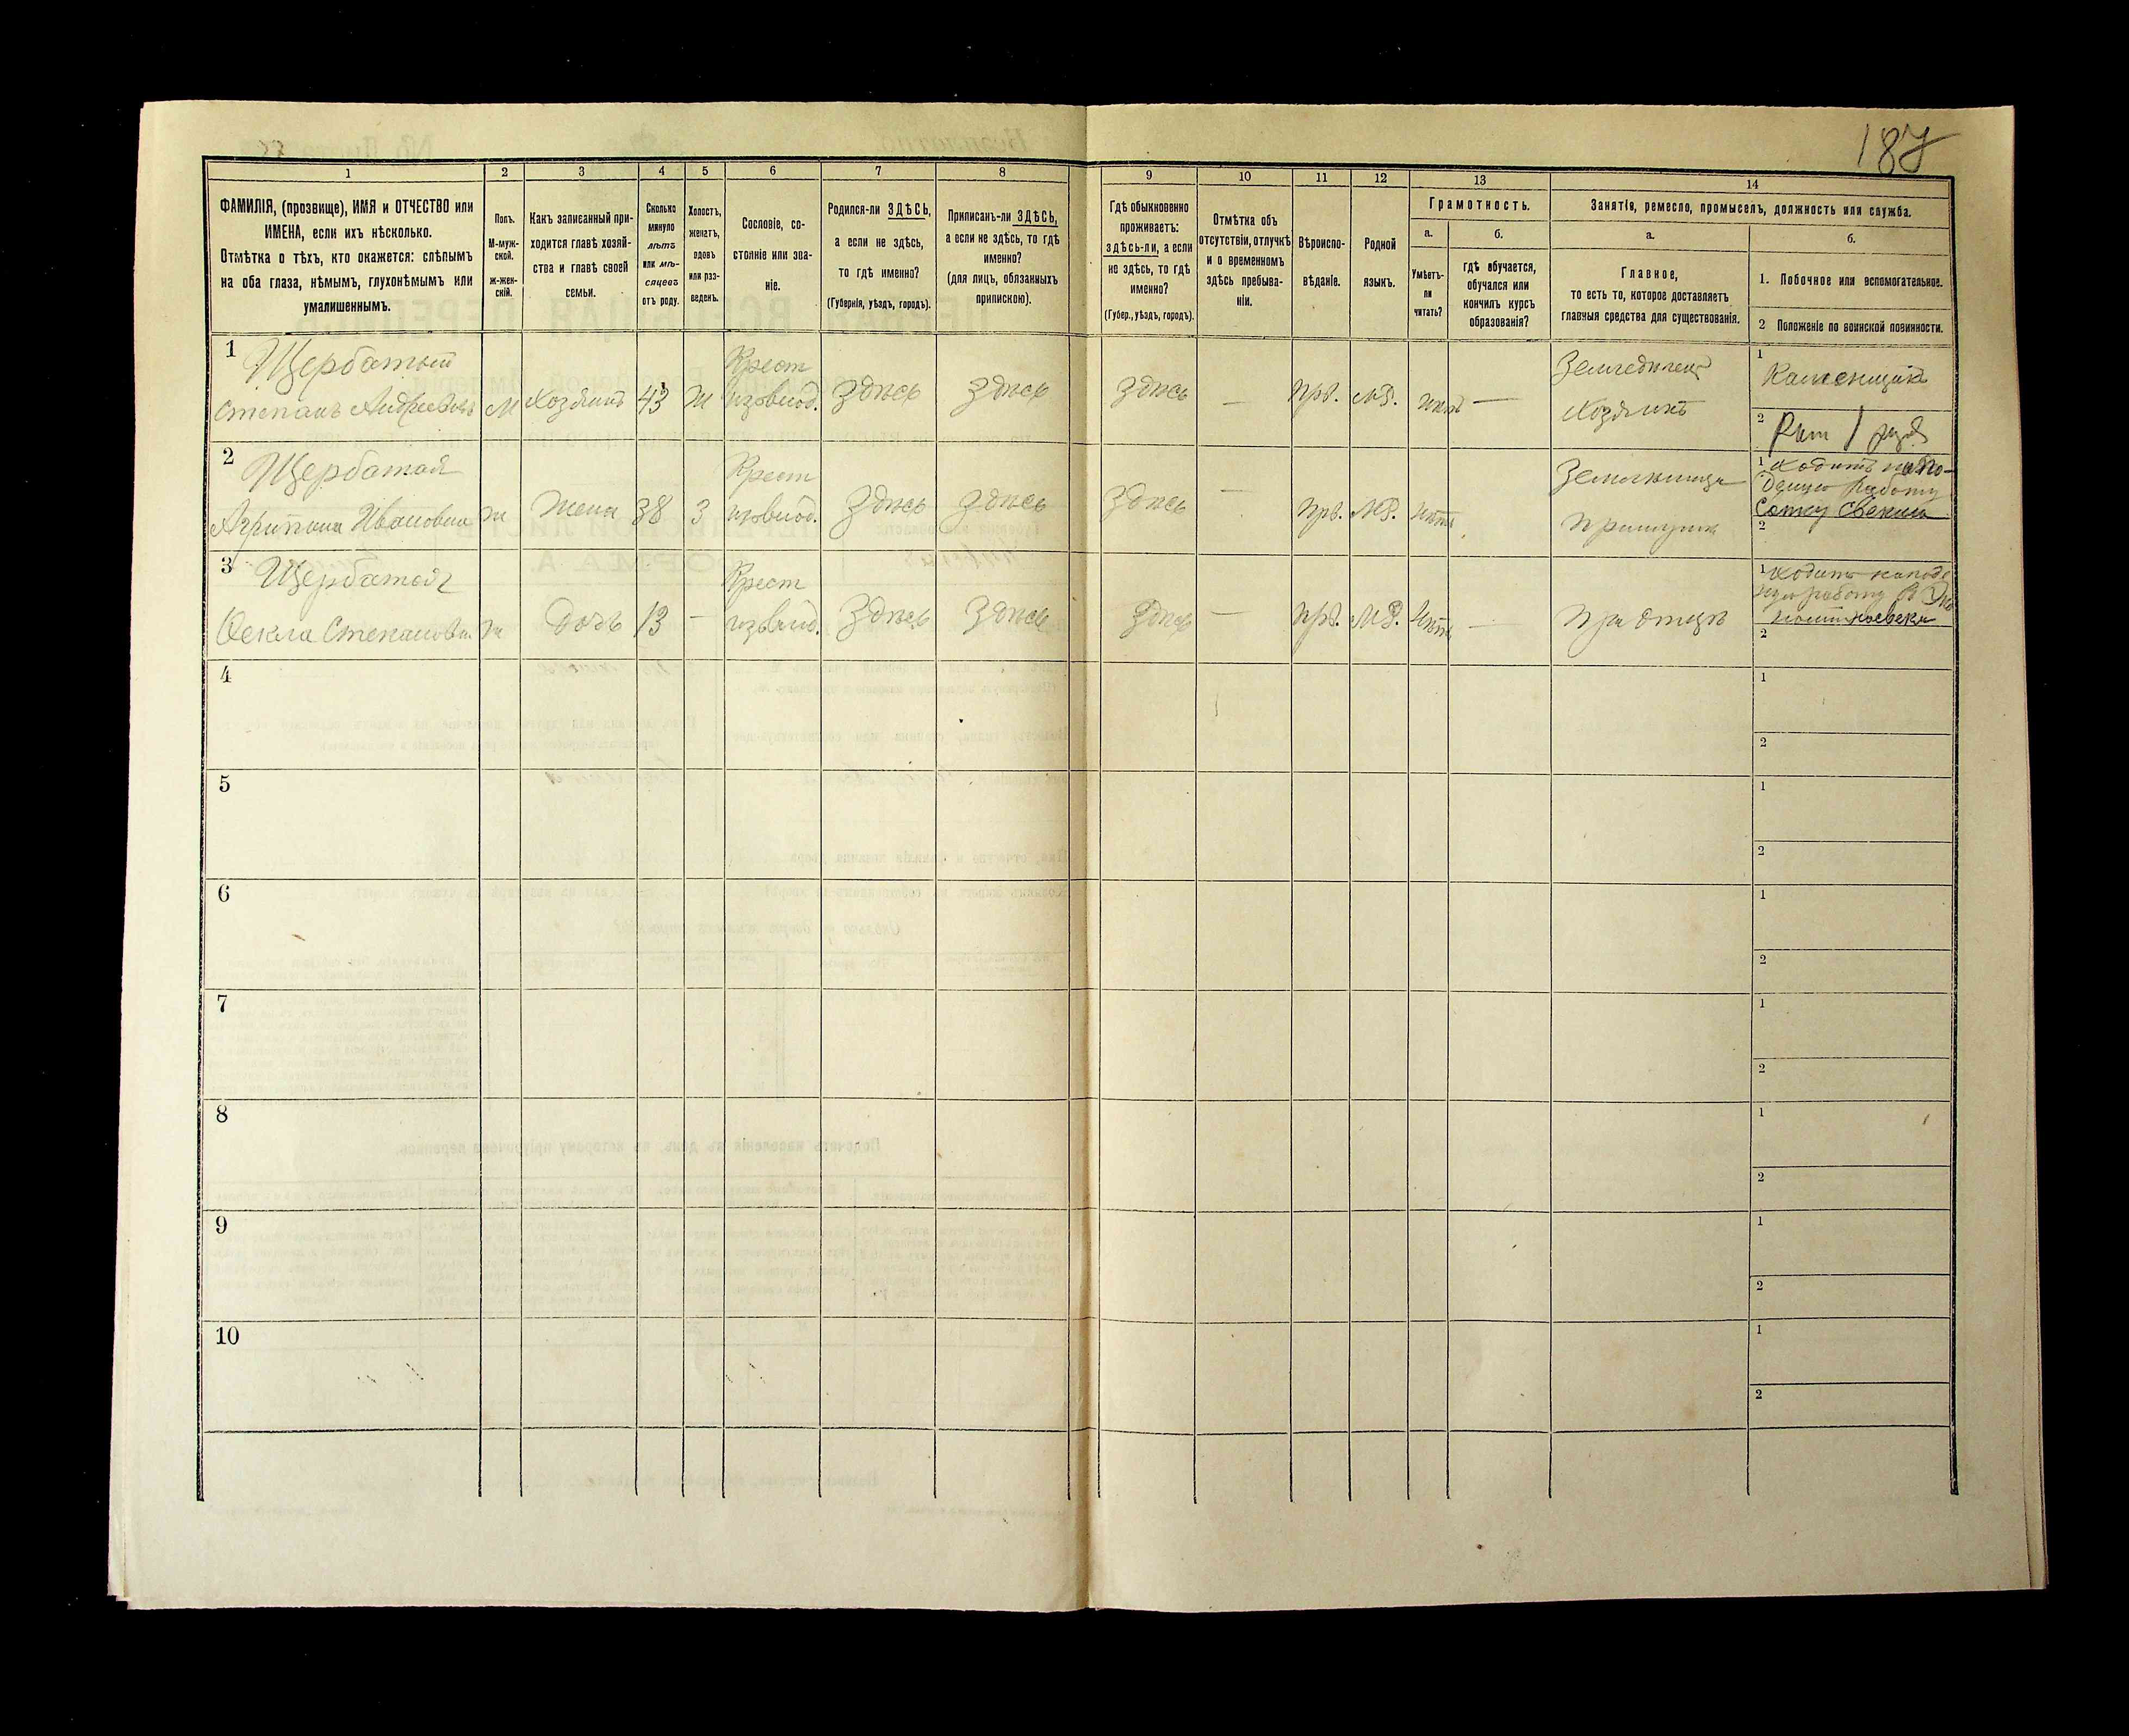 187
1
2
3
4
5
6
7
8
9
10
11
12
13
14
ФАМИЛІЯ, (прозвище), ИМЯ и ОТЧЕСТВО или
ИМЕНА, если ихъ нѣсколько.
Отмѣтка о тѣхъ, кто окажется: слѣпымъ
на оба глаза, нѣмымъ, глухонѣмымъ или
умалишеннымъ.
Полъ.
М-муж-
ской.
ж-жен-
скій.
Какъ записанный при-
ходится главѣ хозяй-
ства и главѣ своей
семьи.
Сколько
минуло
лѣтъ
или мѣ-
сяцевъ
отъ роду.
Холостъ,
женатъ,
вдовъ
или раз-
веденъ.
Сословіе, со-
стояніе или зва-
ніе.
Родился-ли ЗДѢСЬ,
а если не здѣсь,
то гдѣ именно?
(Губернія, уѣздъ, городъ).
Приписанъ-ли ЗДѢСЬ,
а если не здѣсь, то гдѣ
именно?
(для лицъ, обязанныхъ
припискою).
Гдѣ обыкновенно
проживаетъ:
здѣсь-ли, а если
не здѣсь, то гдѣ
именно?
(Губер., уѣздъ, городъ).
Отмѣтка объ
отсутствіи, отлучкѣ
и о временномъ
здѣсь пребыва-
ніи.
Вѣроиспо-
вѣданіе.
Родной
языкъ.
Грамотность.
а.
Умѣетъ-
ли
читать?
б.
гдѣ обучается,
обучался или
кончилъ курсъ
образованія?
Занятія, ремесло, промыселъ, должность или служба.
а.
Главное,
то есть то, которое доставляетъ
главныя средства для существованія.
б.
1. Побочное или вспомогательное.
2 Положеніе по воинской повинности.
1
Щербатый
Степанъ Андреевичъ
М
Хозяинъ
43
Ж
Крест
Здѣсь
Здѣсь
Здѣсь
—
Прв.
М.Р.
нѣтъ
—
Земледѣлец
Хозяинъ
1
Каменщикъ
2
2
Щербатая
Агрипина Ивановна
ж
Жена
38
З
Крест
Здѣсь
Здѣсь
Здѣсь
—
Прв.
М.Р.
нѣтъ
1 Ходитъ на по-
денную работу
2
3
Щербатая
Өекла Степановна
ж
Дочь
13
—
Крест
Здѣсь
Здѣсь
Здѣсь
—
Прв.
М.Р.
нѣтъ
—
При отцѣ
1
2
4
1
2
5
1
2
6
1
2
7
1
2
8
1
2
9
1
2
10
1
2